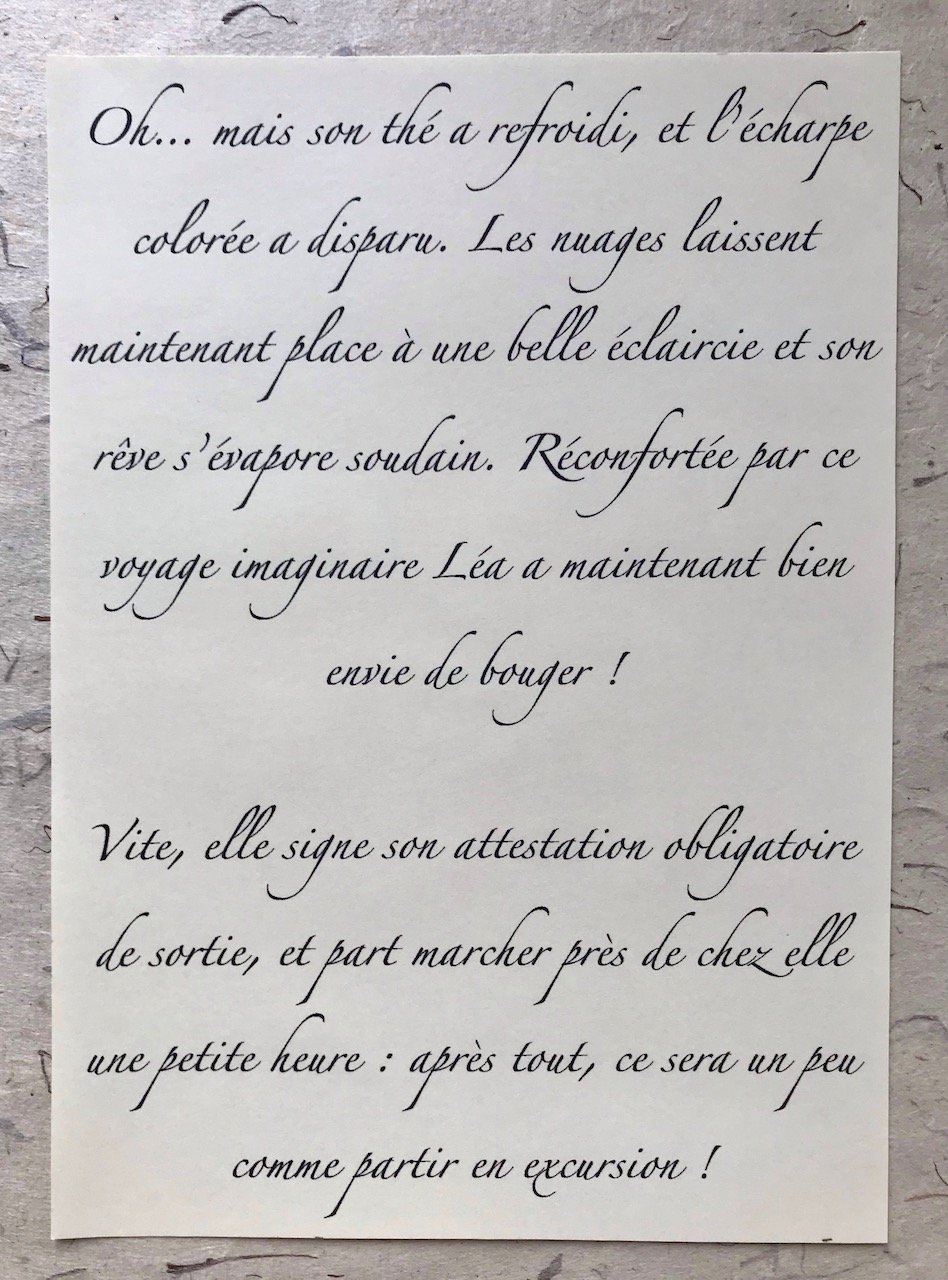 Oh... mais son thé a refroidi, et l'écharpe
colorée a disparu. Les nuages laissent
maintenant place à une belle éclaircie et son
rêve s'évapore soudain. Réconfortée par ce
voyage imaginaire Léa a maintenant bien
envie de bouger !
Vite, elle signe son attestation obligatoire
de sortie, et part marcher près de chez elle
une petite heure : après tout, ce sera un peu
comme partir en excursion !